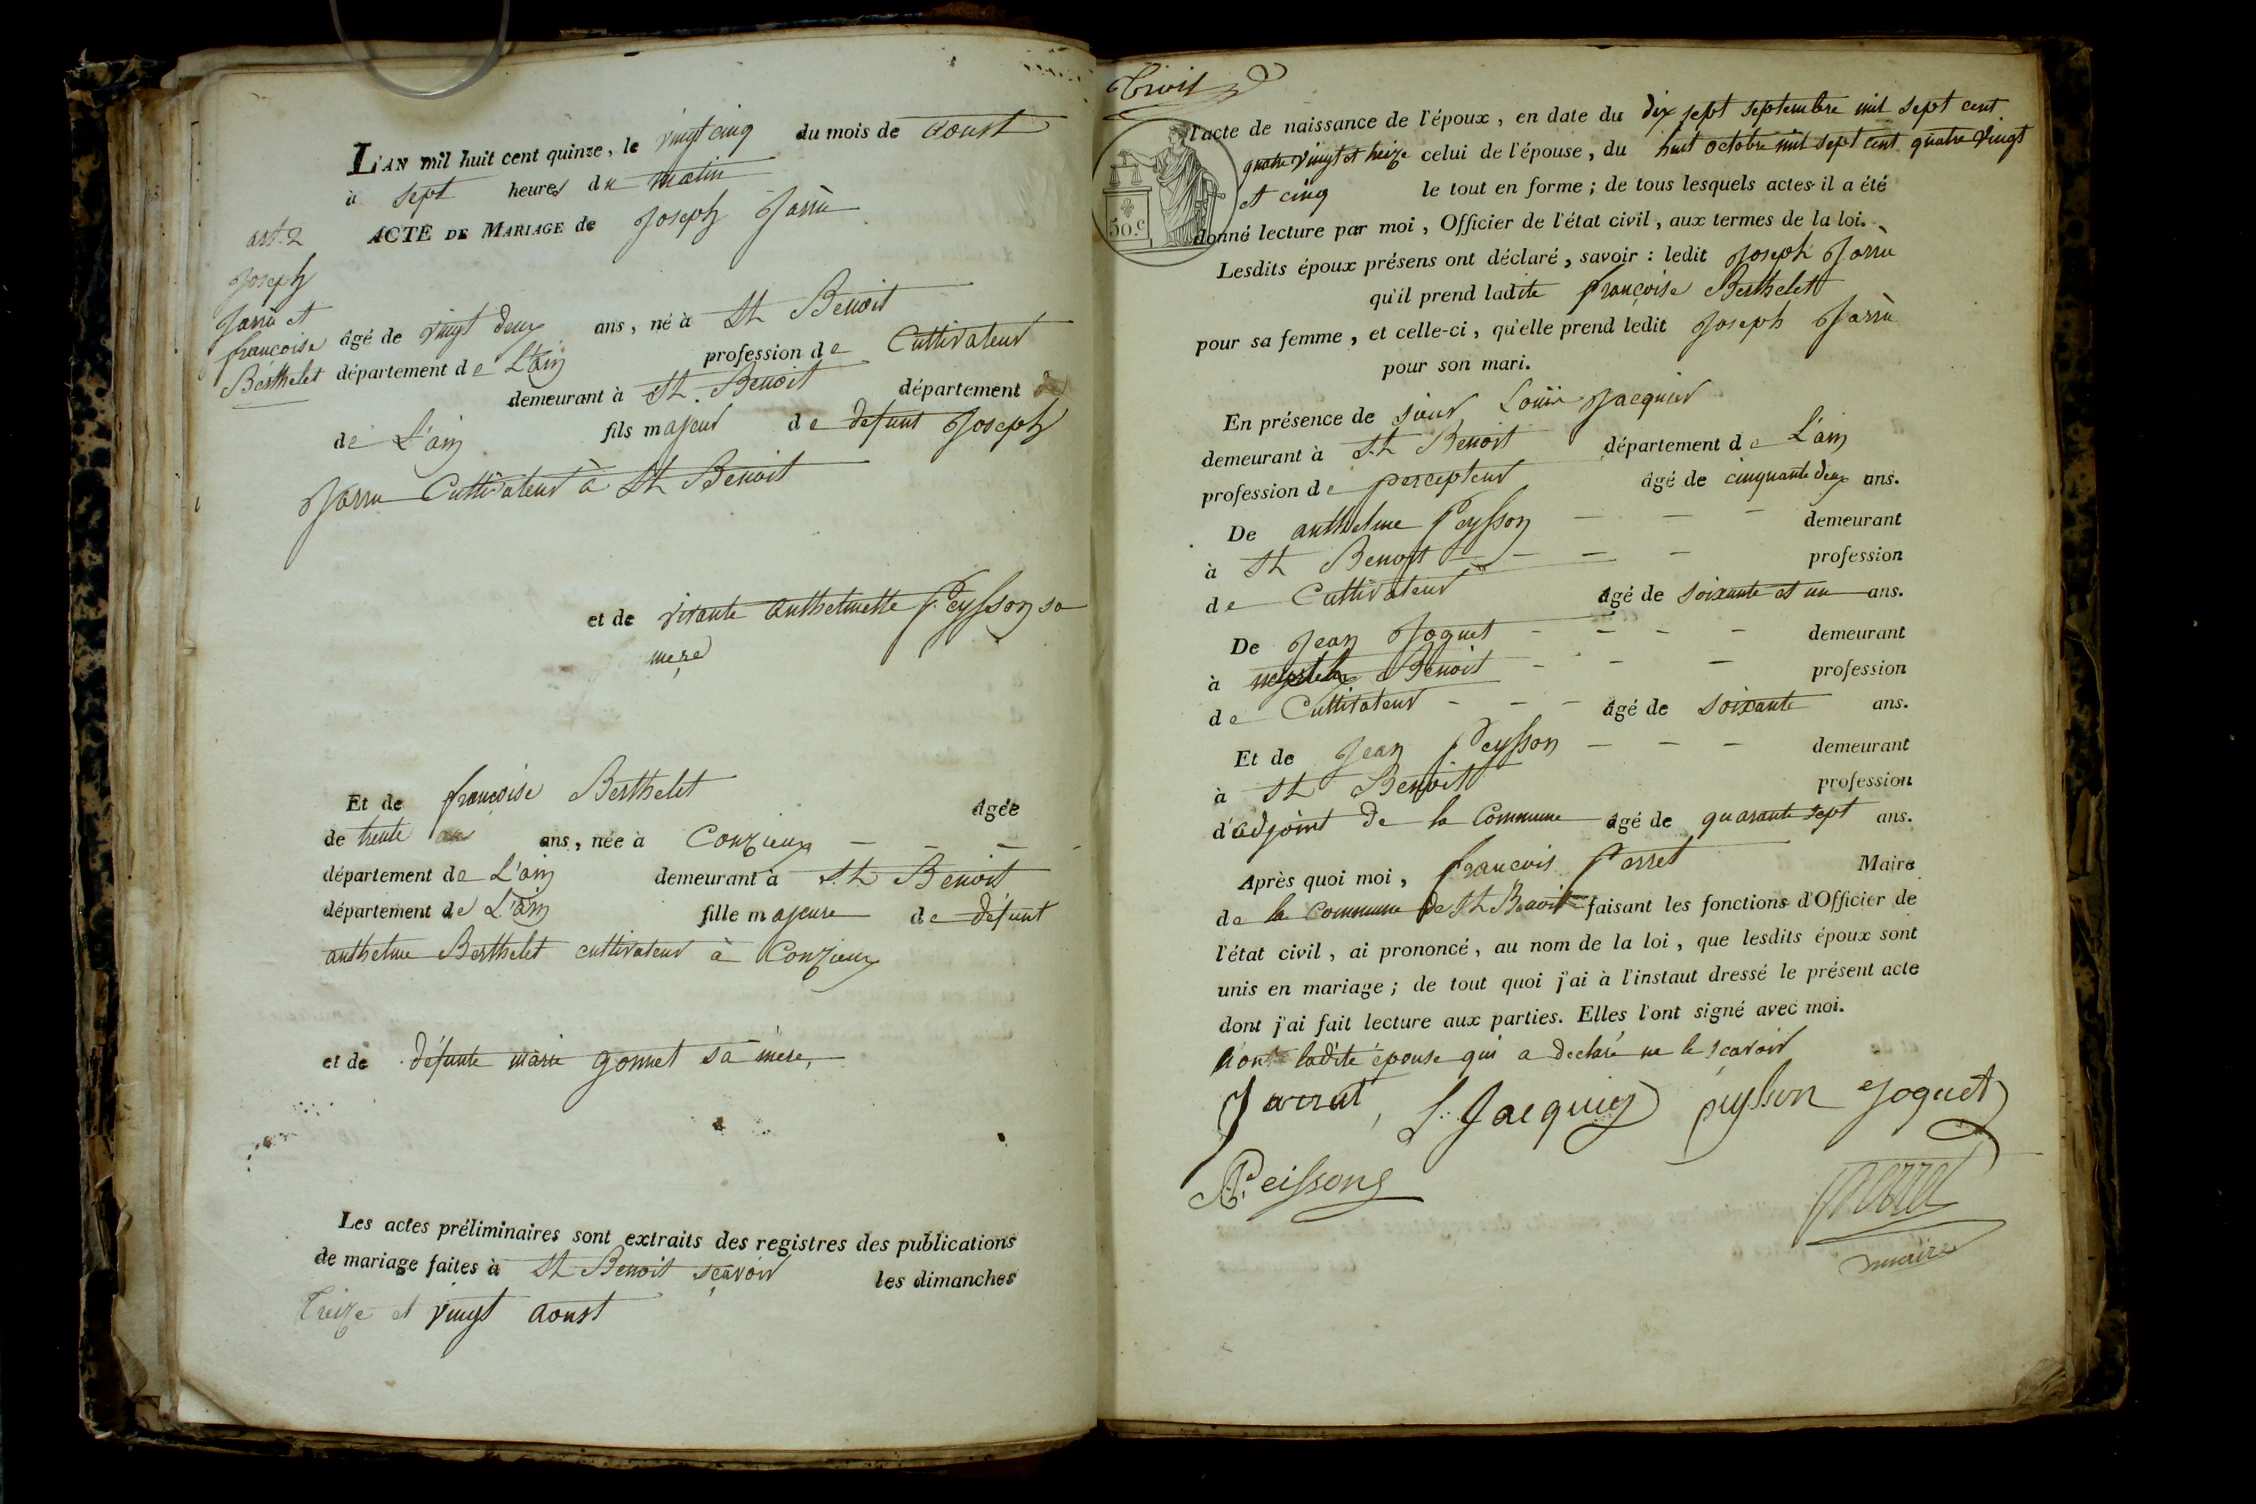 L'AN mil huit cent quinze, le vingt cinq du mois de aoust
à sept heures du matin
ACTE DE MARIAGE de Joseph Jarru
art. 2
Joseph
Jarru et
françoise
Berthelet
âgé de vingt deux ans, né à St Benoit
département de L'ain profession de Cultivateur
demeurant à St. Benoit département de
de L'ain fils majeur de defunt Joseph
Jarru Cultivateur à St Benoit
et de vivante anthelmette Peysson sa
mere
Et de françoise Berthelet agée
de trente ans, née à Conzieux
département de L'ain demeurant à St Benoit
département de L'ain fille majeure de défunt
anthelme Berthelet cultivateur à Conzieux
et de défunte marie gonnet sa mère,
Les actes préliminaires sont extraits des registres des publications
de mariage faites à St Benoit sçavoir les dimanches
Treize et vingt aoust
Trois
l'acte de naissance de l'époux, en date du dix sept septembre mil sept cent
quatre vingt et treize celui de l'épouse, du huit octobre mil sept cent quatre vingt
et cinq le tout en forme; de tous lesquels actes il a été
50.c
donné lecture par moi, Officier de l'état civil, aux termes de la loi.
Lesdits époux présens ont déclaré, savoir : ledit Joseph Jarru
qu'il prend ladite françoise Berthelet
pour sa femme, et celle-ci, qu'elle prend ledit Joseph Jarru
pour son mari.
En présence de sieur Louis Jacquier
demeurant à St. Benoit département de L'ain
profession de percepteur âgé de cinquante deux ans.
De anthelme Peysson demeurant
à St Benoit profession
de Cultivateur agé de soixante et un ans.
De Jean Joguet demeurant
à Benoit profession
de Cultivateur âgé de soixante ans.
Et de Jean Peysson demeurant
à St Benoit profession
d'adjoint de la Commune agé de quarante sept ans.
Après quoi moi, francois Parret Maire
de la Commune de St Benoit faisant les fonctions d'Officier de
l'état civil, ai prononcé, au nom de la loi, que lesdits époux sont
unis en mariage; de tout quoi j'ai à l'instaut dressé le présent acte
dont j'ai fait lecture aux parties. Elles l'ont signé avec moi.
ladite épouse qui a declaré ne le scavoir
Jarrut, L. Jacquier peysson Joguet
Peissong
Parret
maire